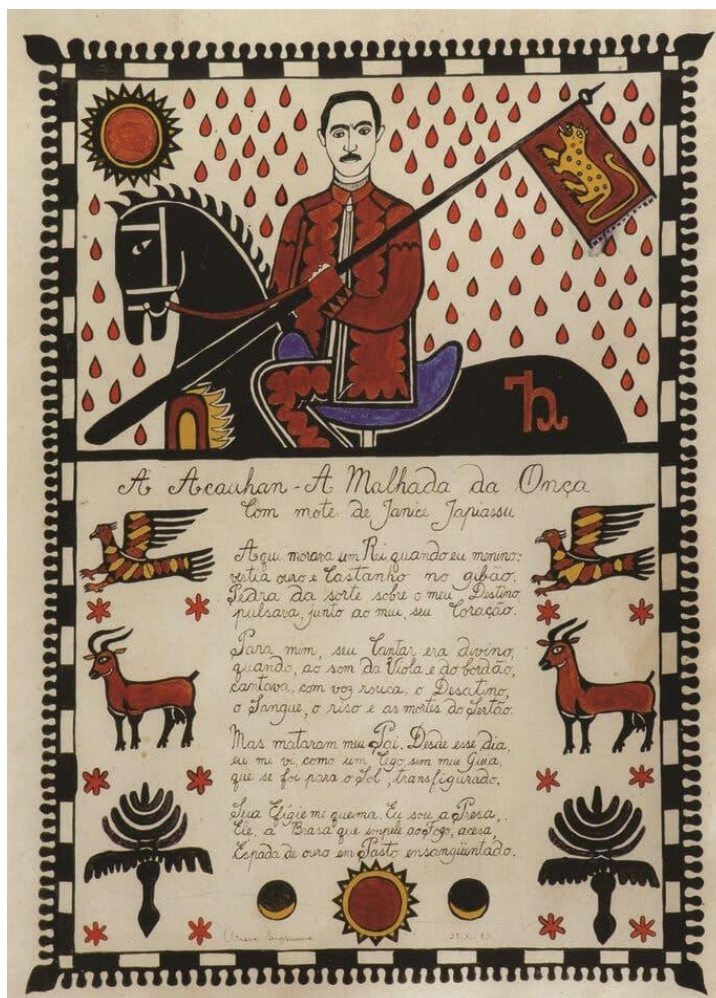 A Acauhan - A Malhada da Onça
Com mote de Janice Japiassu
Aqui morava um Rei quando eu menino:
vestia ouro e Castanho no gibão.
Pedra da sorte sobre o meu Destino,
pulsava, junto ao meu, seu Coração.
Para mim, seu Cantar era divino,
quando, ao som da Viola e do bordão,
cantava, com voz rouca, o Desatino,
o Sangue, o riso e as mortes do Sertão.
Mas mataram meu Pai. Desde esse dia,
eu me vi, como um Cego sem meu Guia,
que se foi para o Sol, transfigurado.
Sua Efígie me queima. Eu sou a Presa,
Ele, a Brasa que impele ao Fogo, acesa,
Espada de ouro em Pasto ensangüentado.